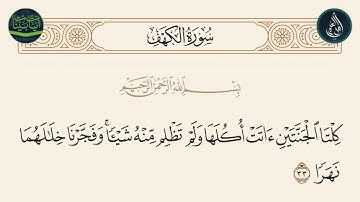 سُورَةُ الْكَهْفِ
بِسْمِ اللَّهِ الرَّحْمَٰنِ الرَّحِيمِ
كِلْتَا ٱلْجَنَّتَيْنِ ءَاتَتْ أُكُلَهَا وَلَمْ تَظْلِم مِّنْهُ شَيْـًٔا ۚ وَفَجَّرْنَا خِلَٰلَهُمَا
نَهَرًا ٣٣